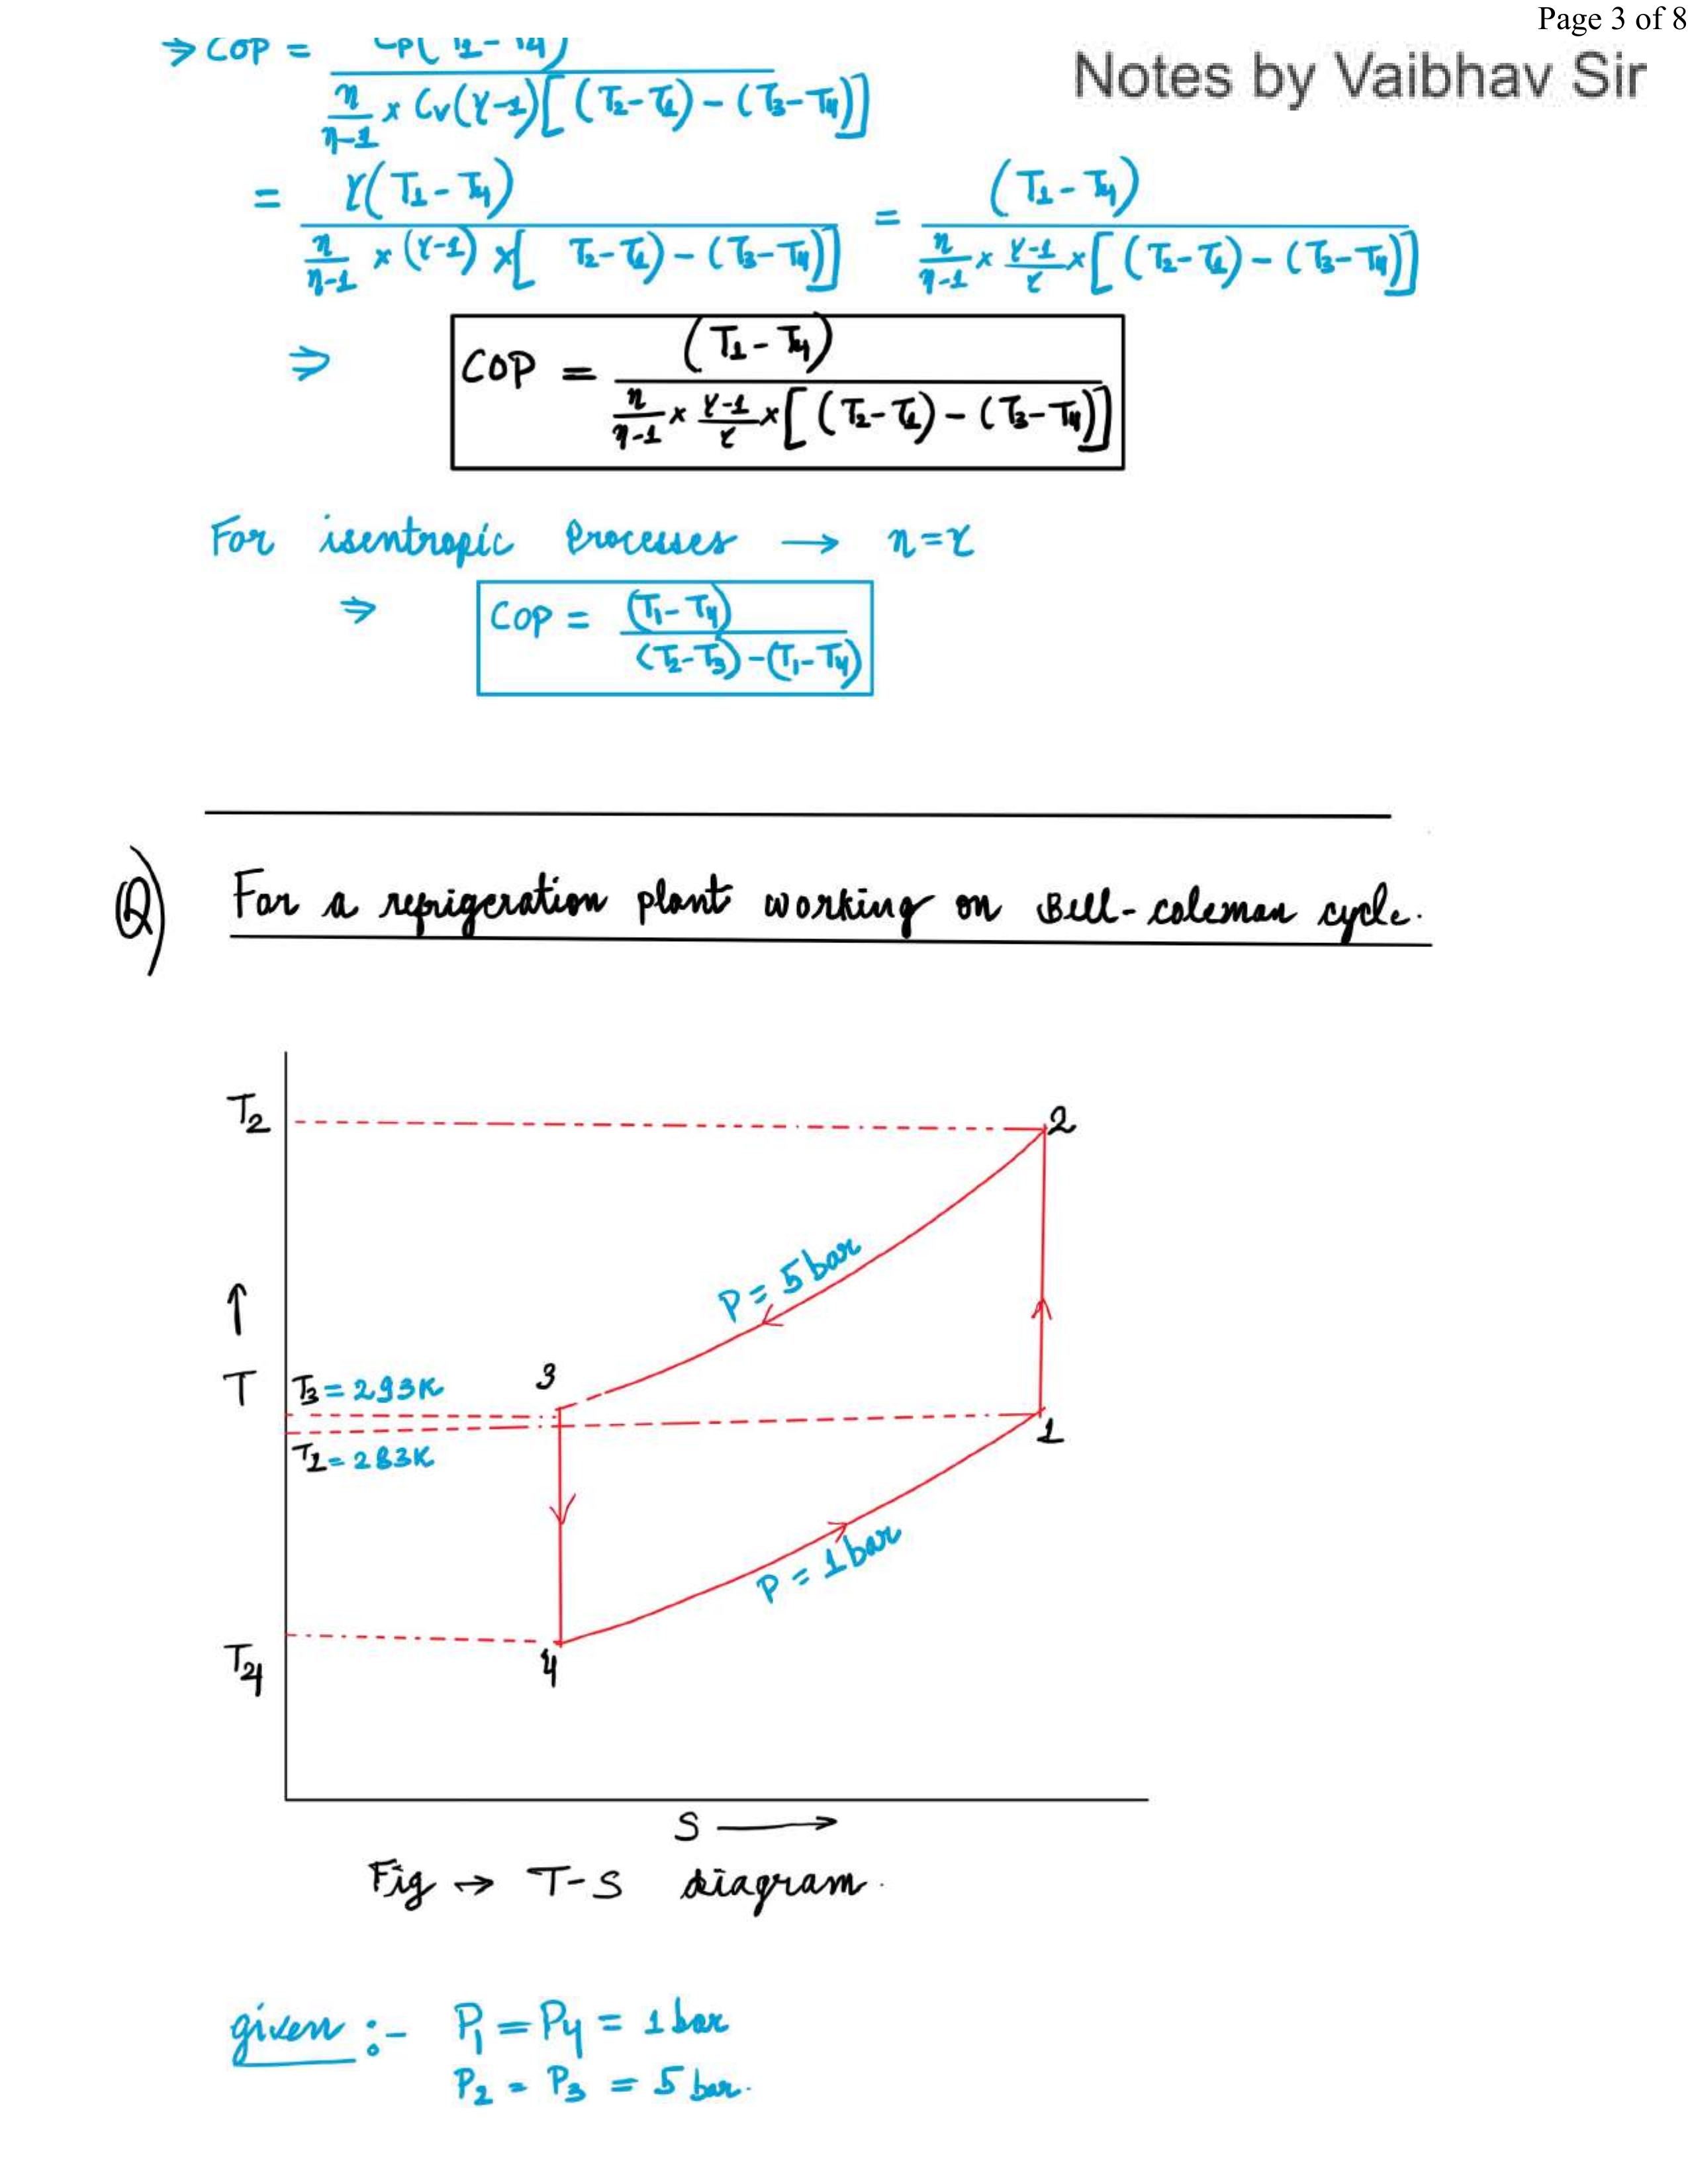 Page 3 of 8
Notes by Vaibhav Sir
⇒ COP = Cp(T1 - T4)
n/n-1 × Cv(γ-1)[(T2-T1) - (T3-T4)]
= γ(T1 - T4) / n/n-1 × (γ-1) ×[ T2-T1) - (T3-T4)] = (T1 - T4) / n/n-1 × γ-1/γ ×[(T2-T1) - (T3-T4)]
⇒ COP = (T1 - T4) / n/n-1 × γ-1/γ ×[(T2-T1) - (T3-T4)]
For isentropic Processes → n=γ
⇒ COP = (T1 - T4) / (T2-T3) - (T1-T4)
Q) For a refrigeration plant working on Bell-coleman cycle.
T2
2
P = 5 bar
↑
T
3
T3 = 293K
1
T1 = 283K
P = 1 bar
T4
4
S →
Fig → T-S diagram.
given :- P1 = P4 = 1 bar
P2 = P3 = 5 bar.